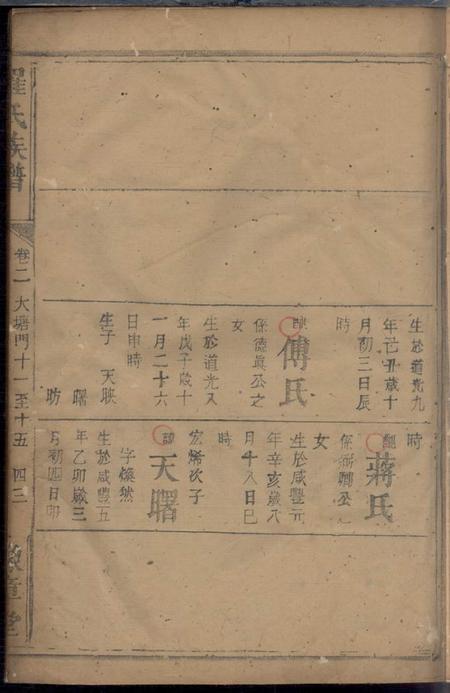 生於道光九
年己丑歲十
月初三日辰
時
配傅氏
係德眞公之
女
生於道光八
年戊子歲十
一月二十六
日申時
生子 天映
曙
昉
時
配蔣氏
女
生於咸豐元
年辛亥歲八
月十八日巳
時
諱天曙
宏烯次子
字燦然
生於咸豐五
年乙卯歲三
月初四日卯
羅氏族譜
卷二 大塘門十一至十五 四三